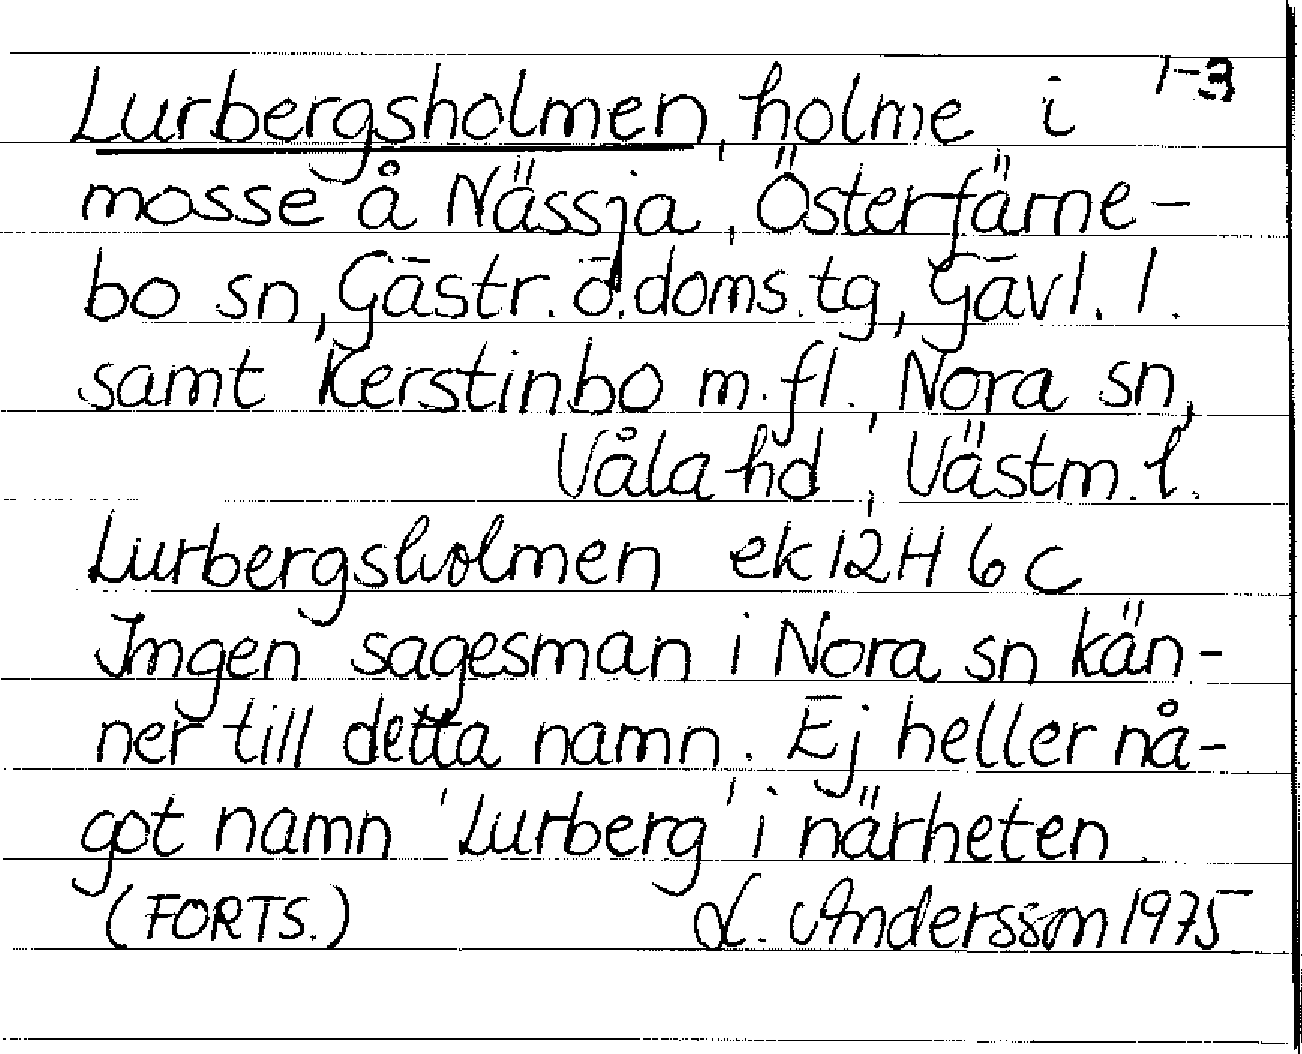 1-3
Lurbergsholmen, holme i
mosse å Nässja, Österfärne-
bo sn, Gästr. ö. doms. tg, Gävl. l.
samt Kerstinbo m. fl., Nora sn,
Våla hd, Västm. l.
Lurbergsholmen ek 12H 6c
Ingen sagesman i Nora sn kän-
ner till detta namn. Ej heller nå-
got namn 'Lurberg' i närheten.
(FORTS.) L. Andersson 1975